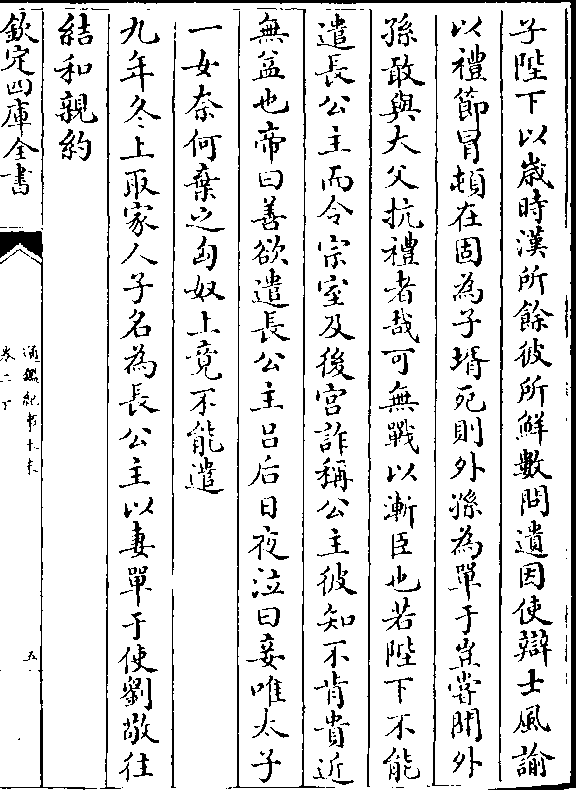 子陛下以歲時漢所餘彼所鮮數問遺因使辯士風諭
以禮節冒頓在固為子壻死則外孫為單于豈嘗聞外
孫敢與大父抗禮者哉可無戰以漸臣也若陛下不能
遣長公主而令宗室及後宮詐稱公主彼知不肯貴近
無益也帝曰善欲遣長公主吕后日夜泣曰妾唯太子
一女奈何棄之匈奴上竟不能遣
九年冬上取家人子名為長公主以妻單于使劉敬往
結和親約
欽定四庫全書
通鑑紀事本末
卷二下
五